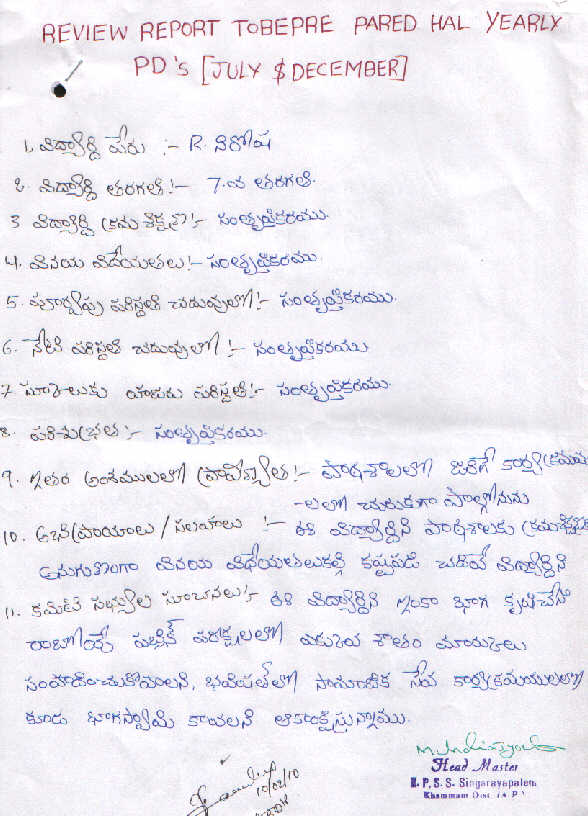 REVIEW REPORT TOBEPRE PARED HAL YEARLY
PD's [JULY & DECEMBER]
1. విద్యార్థి పేరు :- R. నిరోష
2. విద్యార్థి తరగతి :- 7.వ తరగతి.
3 విద్యార్థి క్రమశిక్షణ :- సంతృప్తికరము.
4. వినయ విదేయతలు :- సంతృప్తికరము.
5. పూర్వపు పరిస్థితి చదువులో :- సంతృప్తికరము.
6. నేటి పరిస్థితి చదువులో :- సంతృప్తికరము
7 స్కూలుకు హాజరు పరిస్థితి :- సంతృప్తికరము.
8. పరిశుభ్రత :- సంతృప్తికరము.
9. ఇతర అంశములలో ప్రావీణ్యత :- పాఠశాలలో జరిగే కార్యక్రమము
-లలో చురుకుగా పాల్గొనును
10. అభిప్రాయాలు / సలహాలు :- ఈ విద్యార్థిని పాఠశాలకు క్రమశిక్షణకు
అనుగుణంగా వినయ విధేయతలుకల్గి కష్టపడి చదివే విద్యార్థిని
11. కమిటి సభ్యుల సూచనలు :- ఈ విద్యార్థిని ఇంకా బాగ కృషిచేసి
రాబోయే పబ్లిక్ పరీక్షలలో ఎక్కువ శాతం మార్కులు
సంపాదించుకోవాలని, భవిష్యత్‌లో సామాజిక సేవ కార్యక్రమములలో
కూడ భాగస్వామి కావాలని ఆకాంక్షిస్తున్నాము.
10/02/10
Head Master
U. P. S. S. Singarayapalem
Khammam Dist. (A.P.)